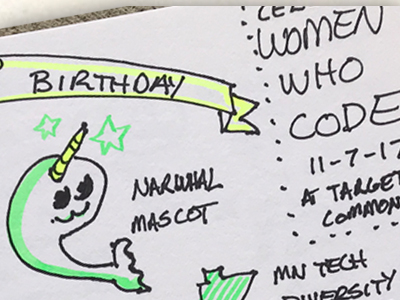 BIRTHDAY
NARWHAL
MASCOT
WOMEN
WHO
CODE
11-7-17
AT TARGET
COMMON
MN TECH
DIVERSITY